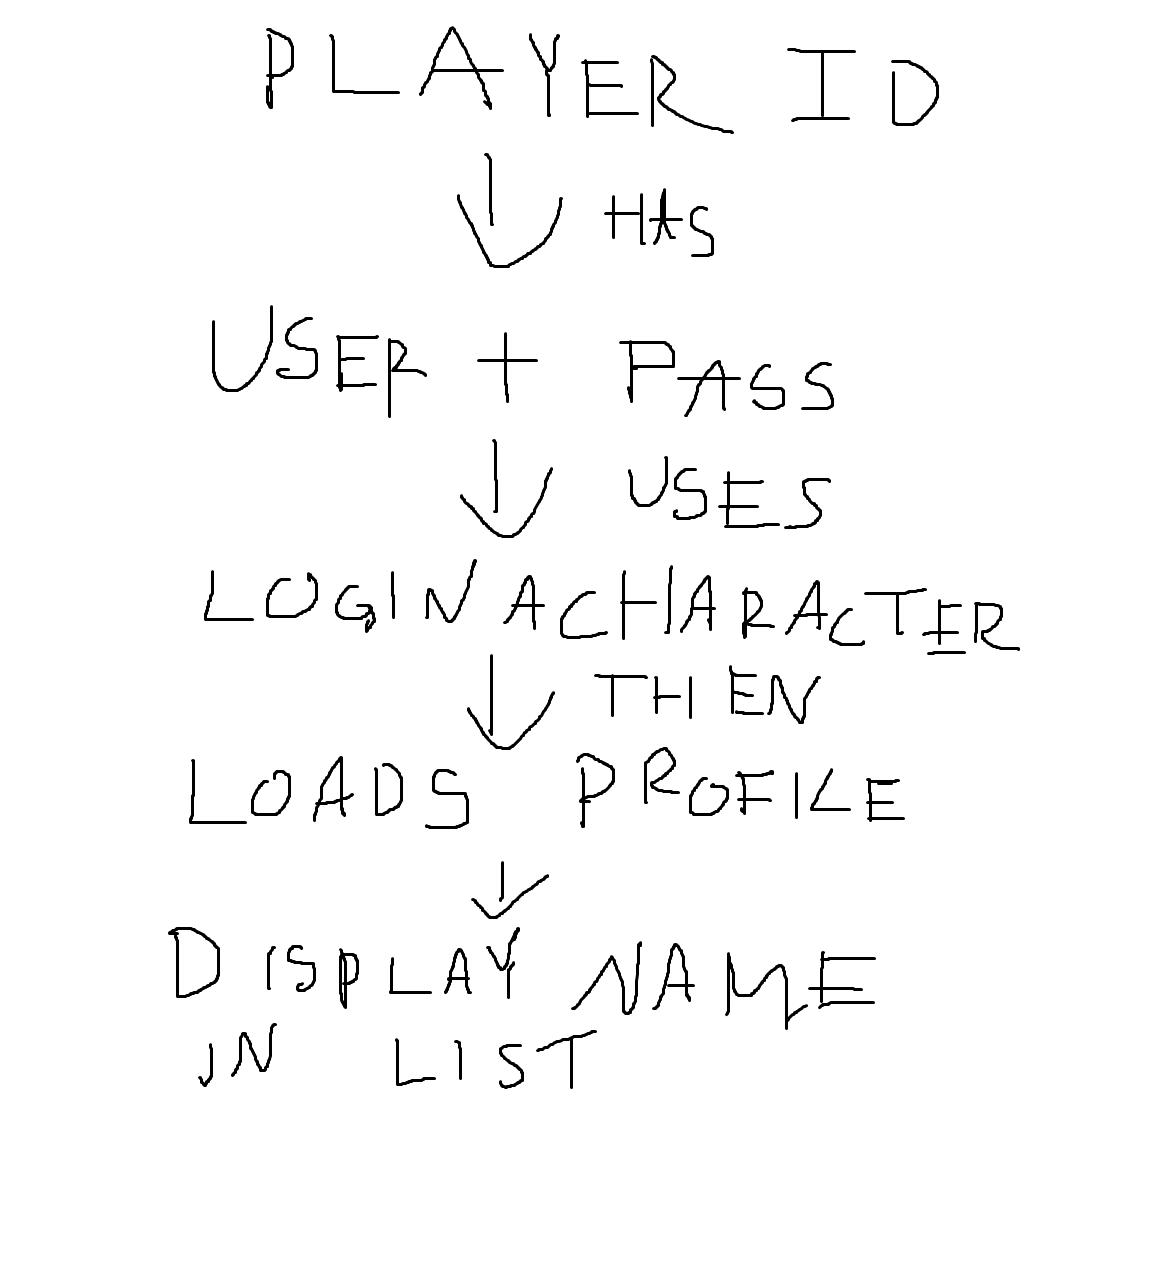 PLAYER ID
HAS
USER + PASS
USES
LOGIN A CHARACTER
THEN
LOADS PROFILE
DISPLAY NAME
IN LIST